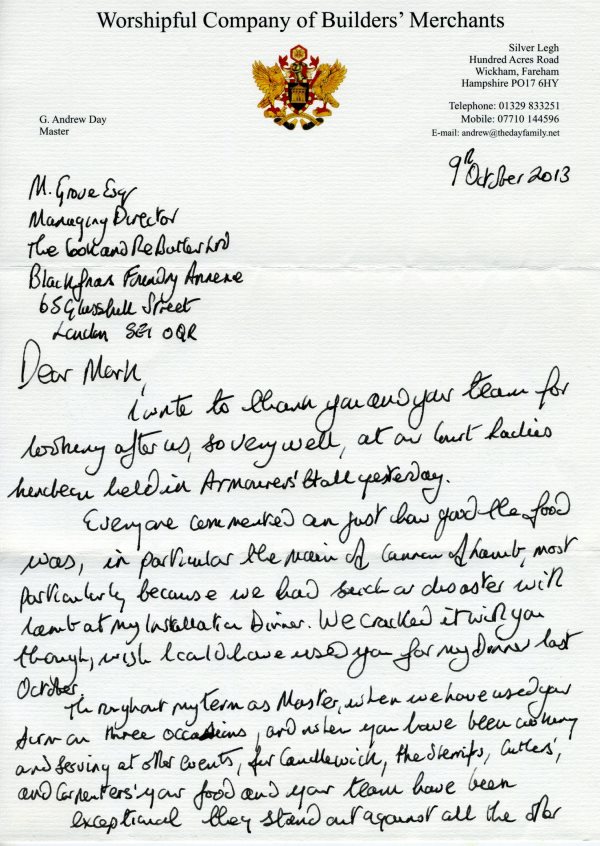 Worshipful Company of Builders' Merchants
Silver Legh
Hundred Acres Road
Wickham, Fareham
Hampshire PO17 6HY
Telephone: 01329 833251
Mobile: 07710 144596
E-mail: andrew@thedayfamily.net
G. Andrew Day
Master
9th October 2013
M. Grove Esqr
Managing Director
The Cook and The Butler Ltd
Blackfriars Foundry Annexe
65 Glasshill Street
London SE1 0QR
Dear Mark,
I write to thank you and your team for
looking after us, so very well, at our Court Ladies
luncheon held in Armourers' Hall yesterday.
Everyone commented on just how good the food
was, in particular the main of Cannon of Lamb, most
particularly because we had such a disaster with
lamb at my Installation Dinner. We cracked it with you
though, wish I could have used you for my Dinner last
October.
Throughout my term as Master, when we have used your
firm on three occasions, and when you have been cooking
and serving at other events, for Candlewick, the Sheriffs, Cutlers',
and Carpenters' your food and your team have been
exceptional they stand out against all the other